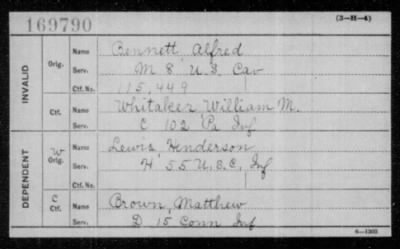 169790
(3-H-4)
INVALID
Orig. Name Bennett, Alfred
Serv. M 8 U.S. Cav
Ctf. No. 115,449
Ctf. Name Whitaker, William M.
Serv. C 102 Pa Inf
DEPENDENT
W Orig. Name Lewis, Henderson
Serv. H 55 U.S.C. Inf
Ctf. No.
C Ctf. Name Brown, Matthew
Serv. D 15 Conn Inf